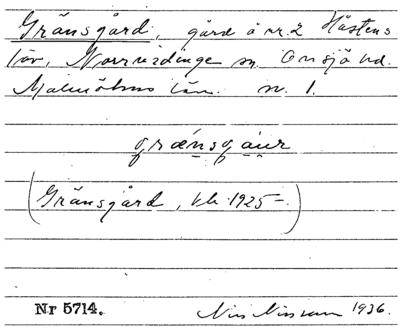 Gränsgård, gård å nr. 2 Håstens
löv, Norrvidinge sn. Onsjö hd.
Malmöhus län. n. 1.
grænsgaur
(Gränsgård, kb. 1925-.)
Nr 5714.
Nils Nilsson 1936.